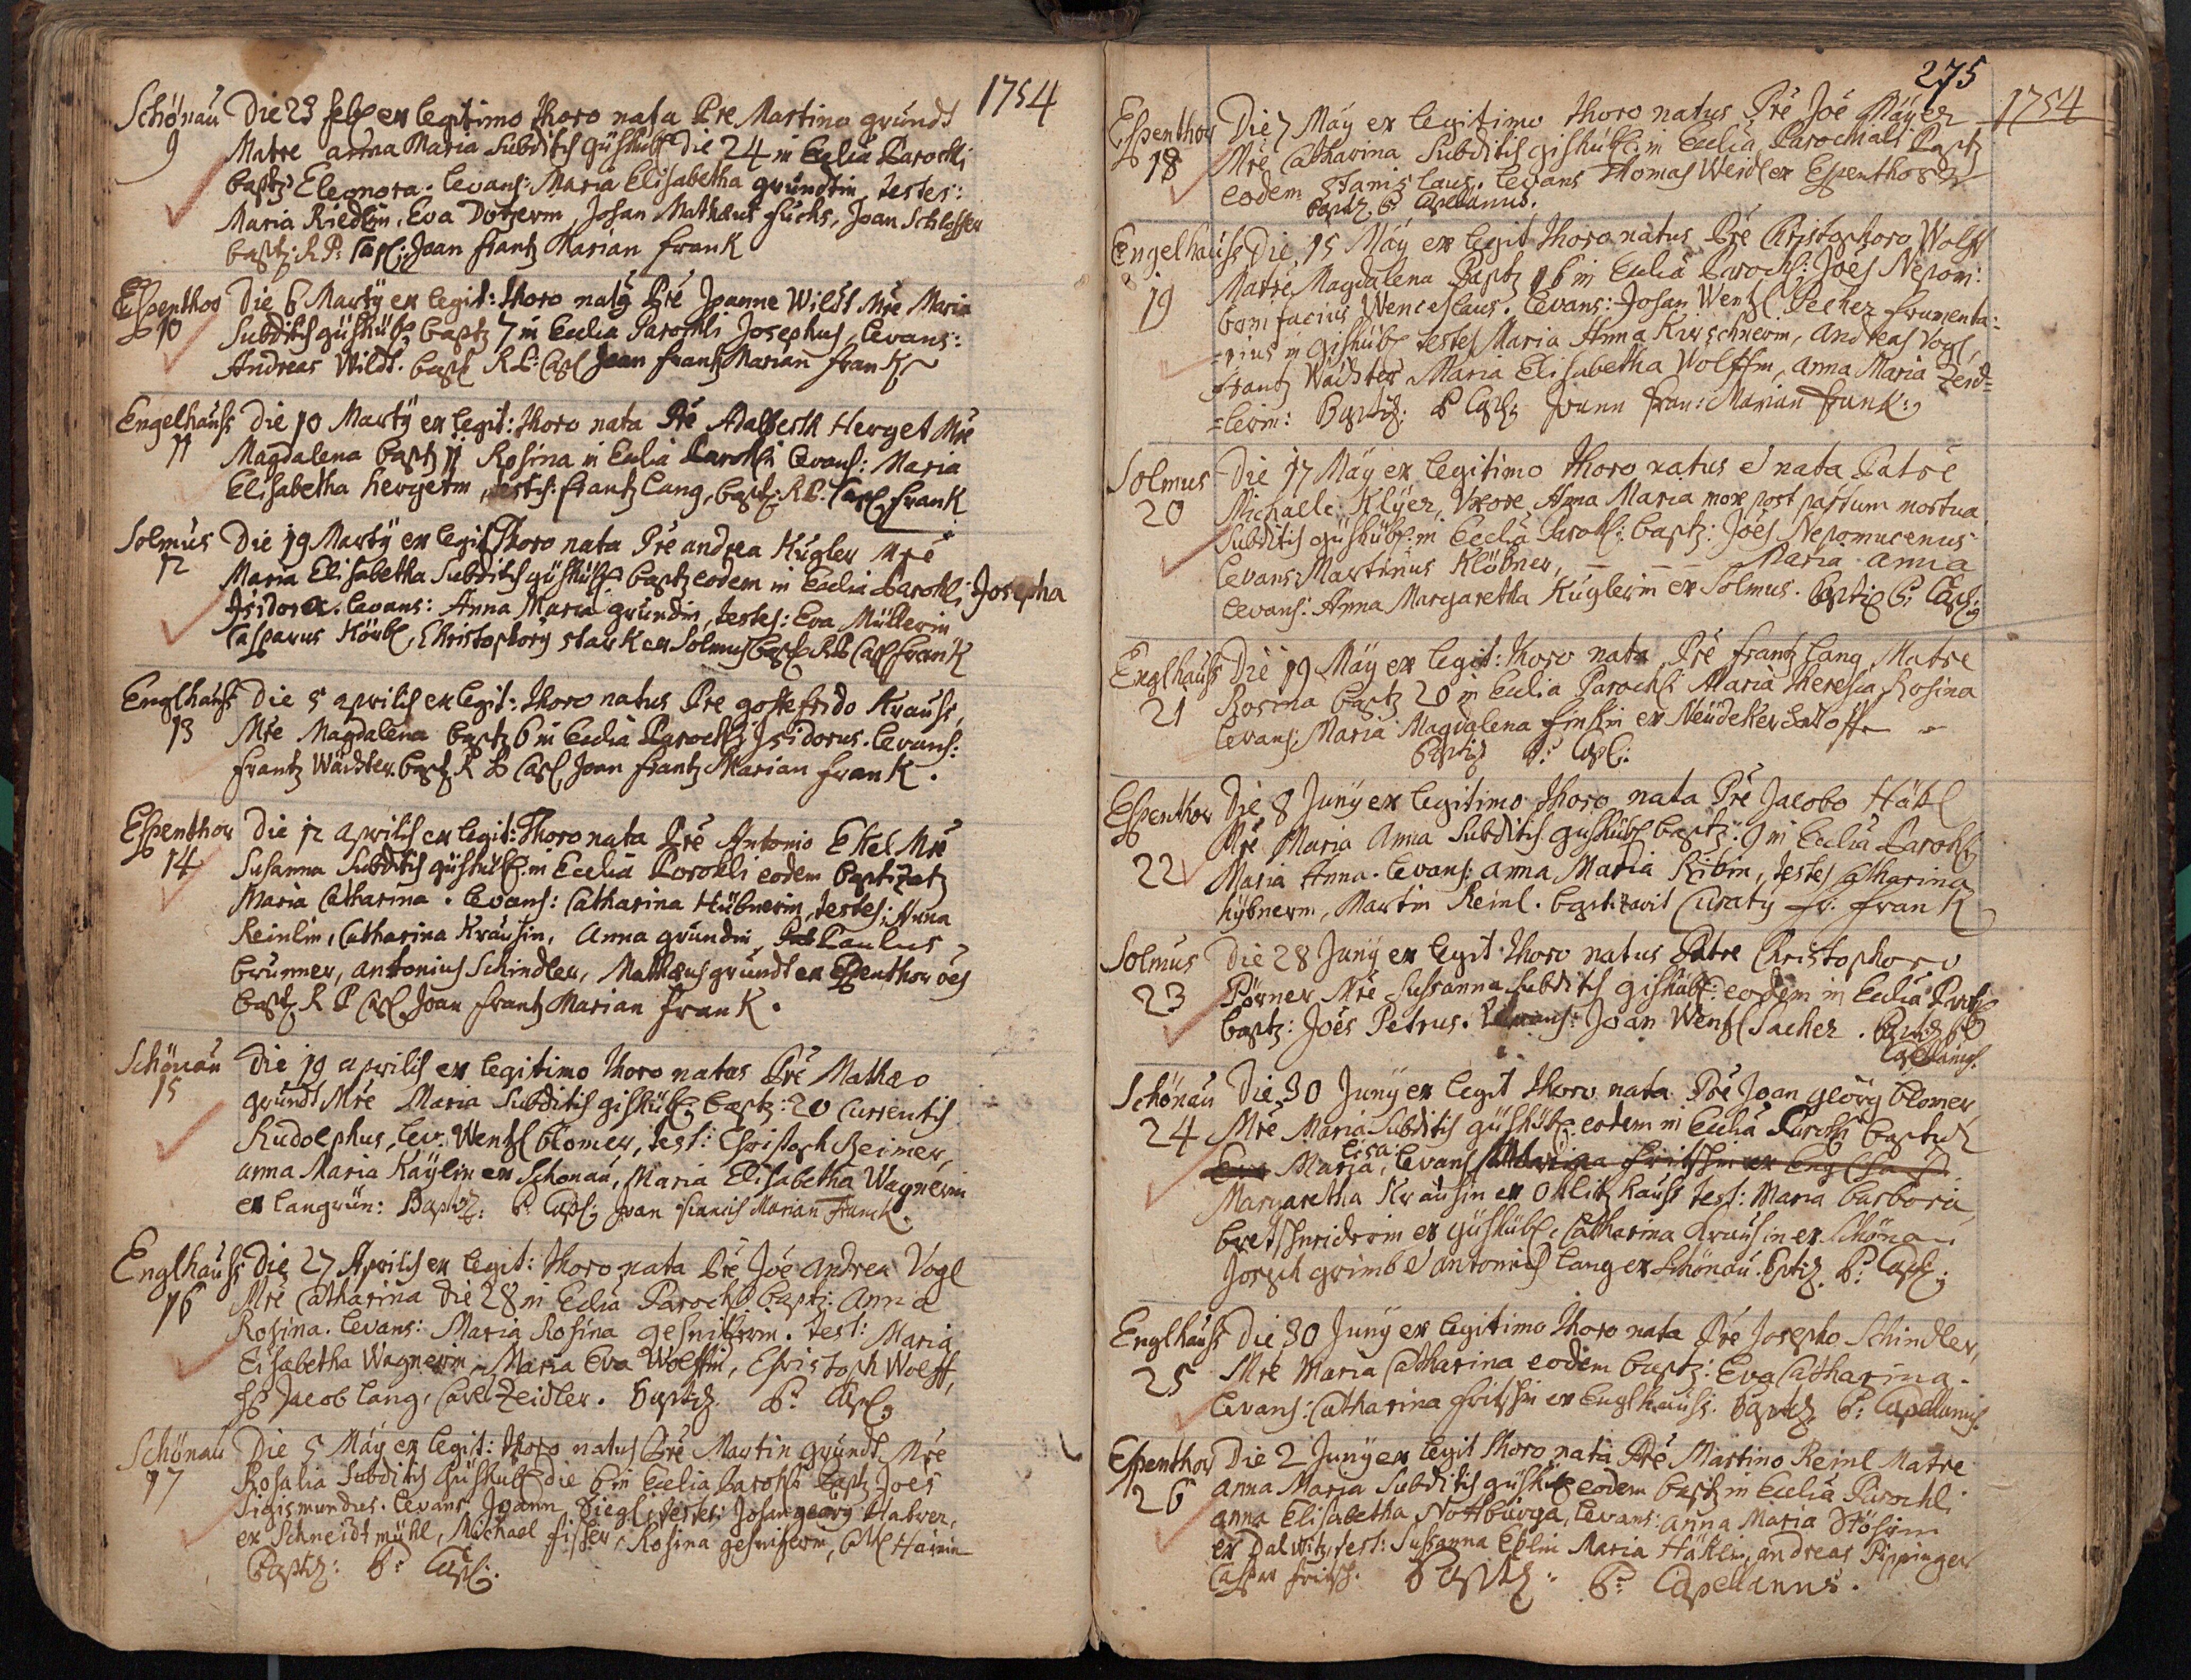 1754
Schönau Die 23 feb ex legitimo thoro nata Pre Martino grundt
9 Matre anna Maria Subditis Güshüb die 24 in Eccliâ Parochli
bapt Eleonora. levans: Maria Elisabetha grundtin, testes:
Maria Riedlin, Eva Dotzerin, Johan Mathæus fuchs, Joan Schlosser
bapt: R P: Capl: Joan frantz Marian frank
Espenthor Die 6 Martÿ ex legit: thoro nat9 Pre Joanne Wildt Mre Maria
10 Subditis güshüb, bapt 7 in Ecclia Parochli Josephus, levans:
Andreas Wildt. bapt R P: Capl Joan frantz Marian frank
Engelhauss Die 10 Martÿ ex legit: thoro nata Pre Adalberth Herget Mre
11 Magdalena bapt 11 Rosina in Eclia Parochli levans: Maria
Elisabetha hergetin, testes: frantz lang, bapt: R P. Capl frank
Solmus Die 19 Martÿ ex legit Thoro nata Pre andrea Kugler Mre
12 Maria Elisabetha Subditis güshüb bapt eodem in Ecclia Parochli Josepha
Isidora. levans: Anna Maria grundin, testes: Eva Müllerin
Casparus Hörbl, Christophorg stark ex Solmus bapt R P Capl frank
Englhauss Die 5 aprilis ex legit: thoro natus Pre gottefrido Krauss,
13 Mre Magdalena bapt 6 in Ecclia Parochli Isidorus. levans:
frantz Wächter. bapt R P Capl Joan frantz Marian frank.
Espenthor Die 12 aprilis ex legit: Thoro nata Pre Antonio Ekel Mre
14 Susanna Subditis güshüb. in Ecclia Parochli eodem baptizata
Maria Catharina. levans: Catharina Hübnerin, testes: Anna
Reinlin, Catharina Krausin, Anna grundin, Pat Paulus
brunner, antonius Schindler, Mathæus grundt ex Espenthor oes
bapt R P Capl Joan frantz Marian frank.
Schönau Die 19 aprilis ex legitimo thoro natus Pre Mathæo
15 grundt Mre Maria Subditis gishüb, bapt: 20 Currentis
Rudolphus, lev: Wentzl blomer, test: Christoph Beimer,
anna Maria Kaÿlin ex Schönau, Maria Elisabetha Wagnerin
ex langrün: Baptiz: P: Capl: Joan Marian Franck.
Englhauss Die 27 Aprilis ex legit: thoro nata Pre Joe Andrea Vogl
16 Mre Catharina die 28 in Eclia Parochli baptz: Anna
Rosina. levans: Maria Rosina gesnitzerin. test: Maria
Elisabetha Wagnerin, Maria Eva Wolffin, Christoph Wolff,
Jacob lang, Carl Zeidler. baptiz. P: Capl:
Schönau Die 5 Máÿ ex legit: thoro natus Pre Martin grundt Mre
17 Rosalia Subditis Güshüb die 6 in Ecclia Parochli bapt Joes
Sigismundus. levans Joann Siegl, testes: Johan georg Hatver,
ex Schneidtmühl, Michael fisher, Rosina gesnitzerin,
Baptiz: P: Capl:
275
1754
Espenthor Die 7 Maÿ ex legitimo thoro natus Pre Joe Maÿer
18 Mre Catharina Subditis gishübl: in Ecclia Parochiali Bapt
eodem Stanislaus. levans Thomas Weidl ex Espenthor
baptiz P: Capellanus.
Engelhauss Die 15 Máÿ ex legit thoro natus Pre Christophoro Wolff
19 Matre Magdalena Baptz 16 in Ecclia Parochl: Joes Nepom:
bonifacius Wenceslaus. levans: Johan Wentzl Pecher frumenta=
=rius in Gishübl testes Maria Anna Kirschnerin, Andreas Vogl,
frantz Wächter Maria Elisabetha Wolffin, Anna Maria Zeid=
=lerin: Baptiz: P Capl: Joann fran: Marian Frank:
Solmus Die 17 Maÿ ex legitimo thoro natus et nata Patre
20 Michaele Klÿer, Uxore Anna Maria mox post partum mortua
Subditis güshübl. in Ecclia Parochl: baptz: Joes Nepomucenus
levans Martinus Klöbner, — — — Maria anna
levans: Anna Margaretha Kuglerin ex Solmus. baptiz P: Capl:
Englhauss Die 19 Maÿ ex legit: thoro nata Pre frantz lang, Matre
21 Rosina baptz 20 in Ecclia Parochli Maria Theresia Rosina
levans: Maria Magdalena finkin ex Neüdeker
baptiz P: Capl:
Espenthor Die 8 Junÿ ex legitimo thoro nata Pre Jacobo Häkl
22 Mre Maria Anna Subditis gushübl baptz: 9 in Ecclia Parochl
Maria Anna. levans: anna Maria Ribin, testes Catharina
hÿbnerin, Martin Reinl. baptizavit Curat9 fr: frank
Solmus Die 28 Junÿ ex legit thoro natus Patre Christophoro
23 Pörner Mre Sussanna Subditis gishübl: eodem in Ecclia Parochl
baptz: Joes Petrus. levans: Joan Wentzl Sacher. baptiz P:
Capellanus.
Schönau Die 30 Junÿ ex legit thoro nata Pre Joan georg blomer
24 Mre Maria Subditis güshübl: eodem in Ecclia Parochli baptiz
Eva Maria, Lisa: levans Maria fritshin ex Englhauss
Margaretha Krausin ex Oklitzhauss test: Maria barbora
bretschneiderin ex güshübl, Catharina Krausin ex Schöna.
Joseph grimb et antonius lang ex Schönau. Bptiz. P: Capl:
Englhauss Die 30 Junÿ ex legitimo thoro nata Pre Josepho Schindler,
25 Mre Maria Catharina eodem baptz: Eva Catharina.
levans: Catharina fritshin ex Englhauss. baptiz P: Capellanus.
Espenthor Die 2 Junÿ ex legit thoro nata Pre Martino Reinl Matre
26 anna Maria Subditis güshübl eodem baptz in Ecclia Parochli
anna Elisabetha Nottburga, levans: anna Maria Stöhrin
ex Dalwitz, test: Sussanna Eklin Maria Häklin, andreas Pippinger
Caspar fritsh. baptiz: P: Capellanus.